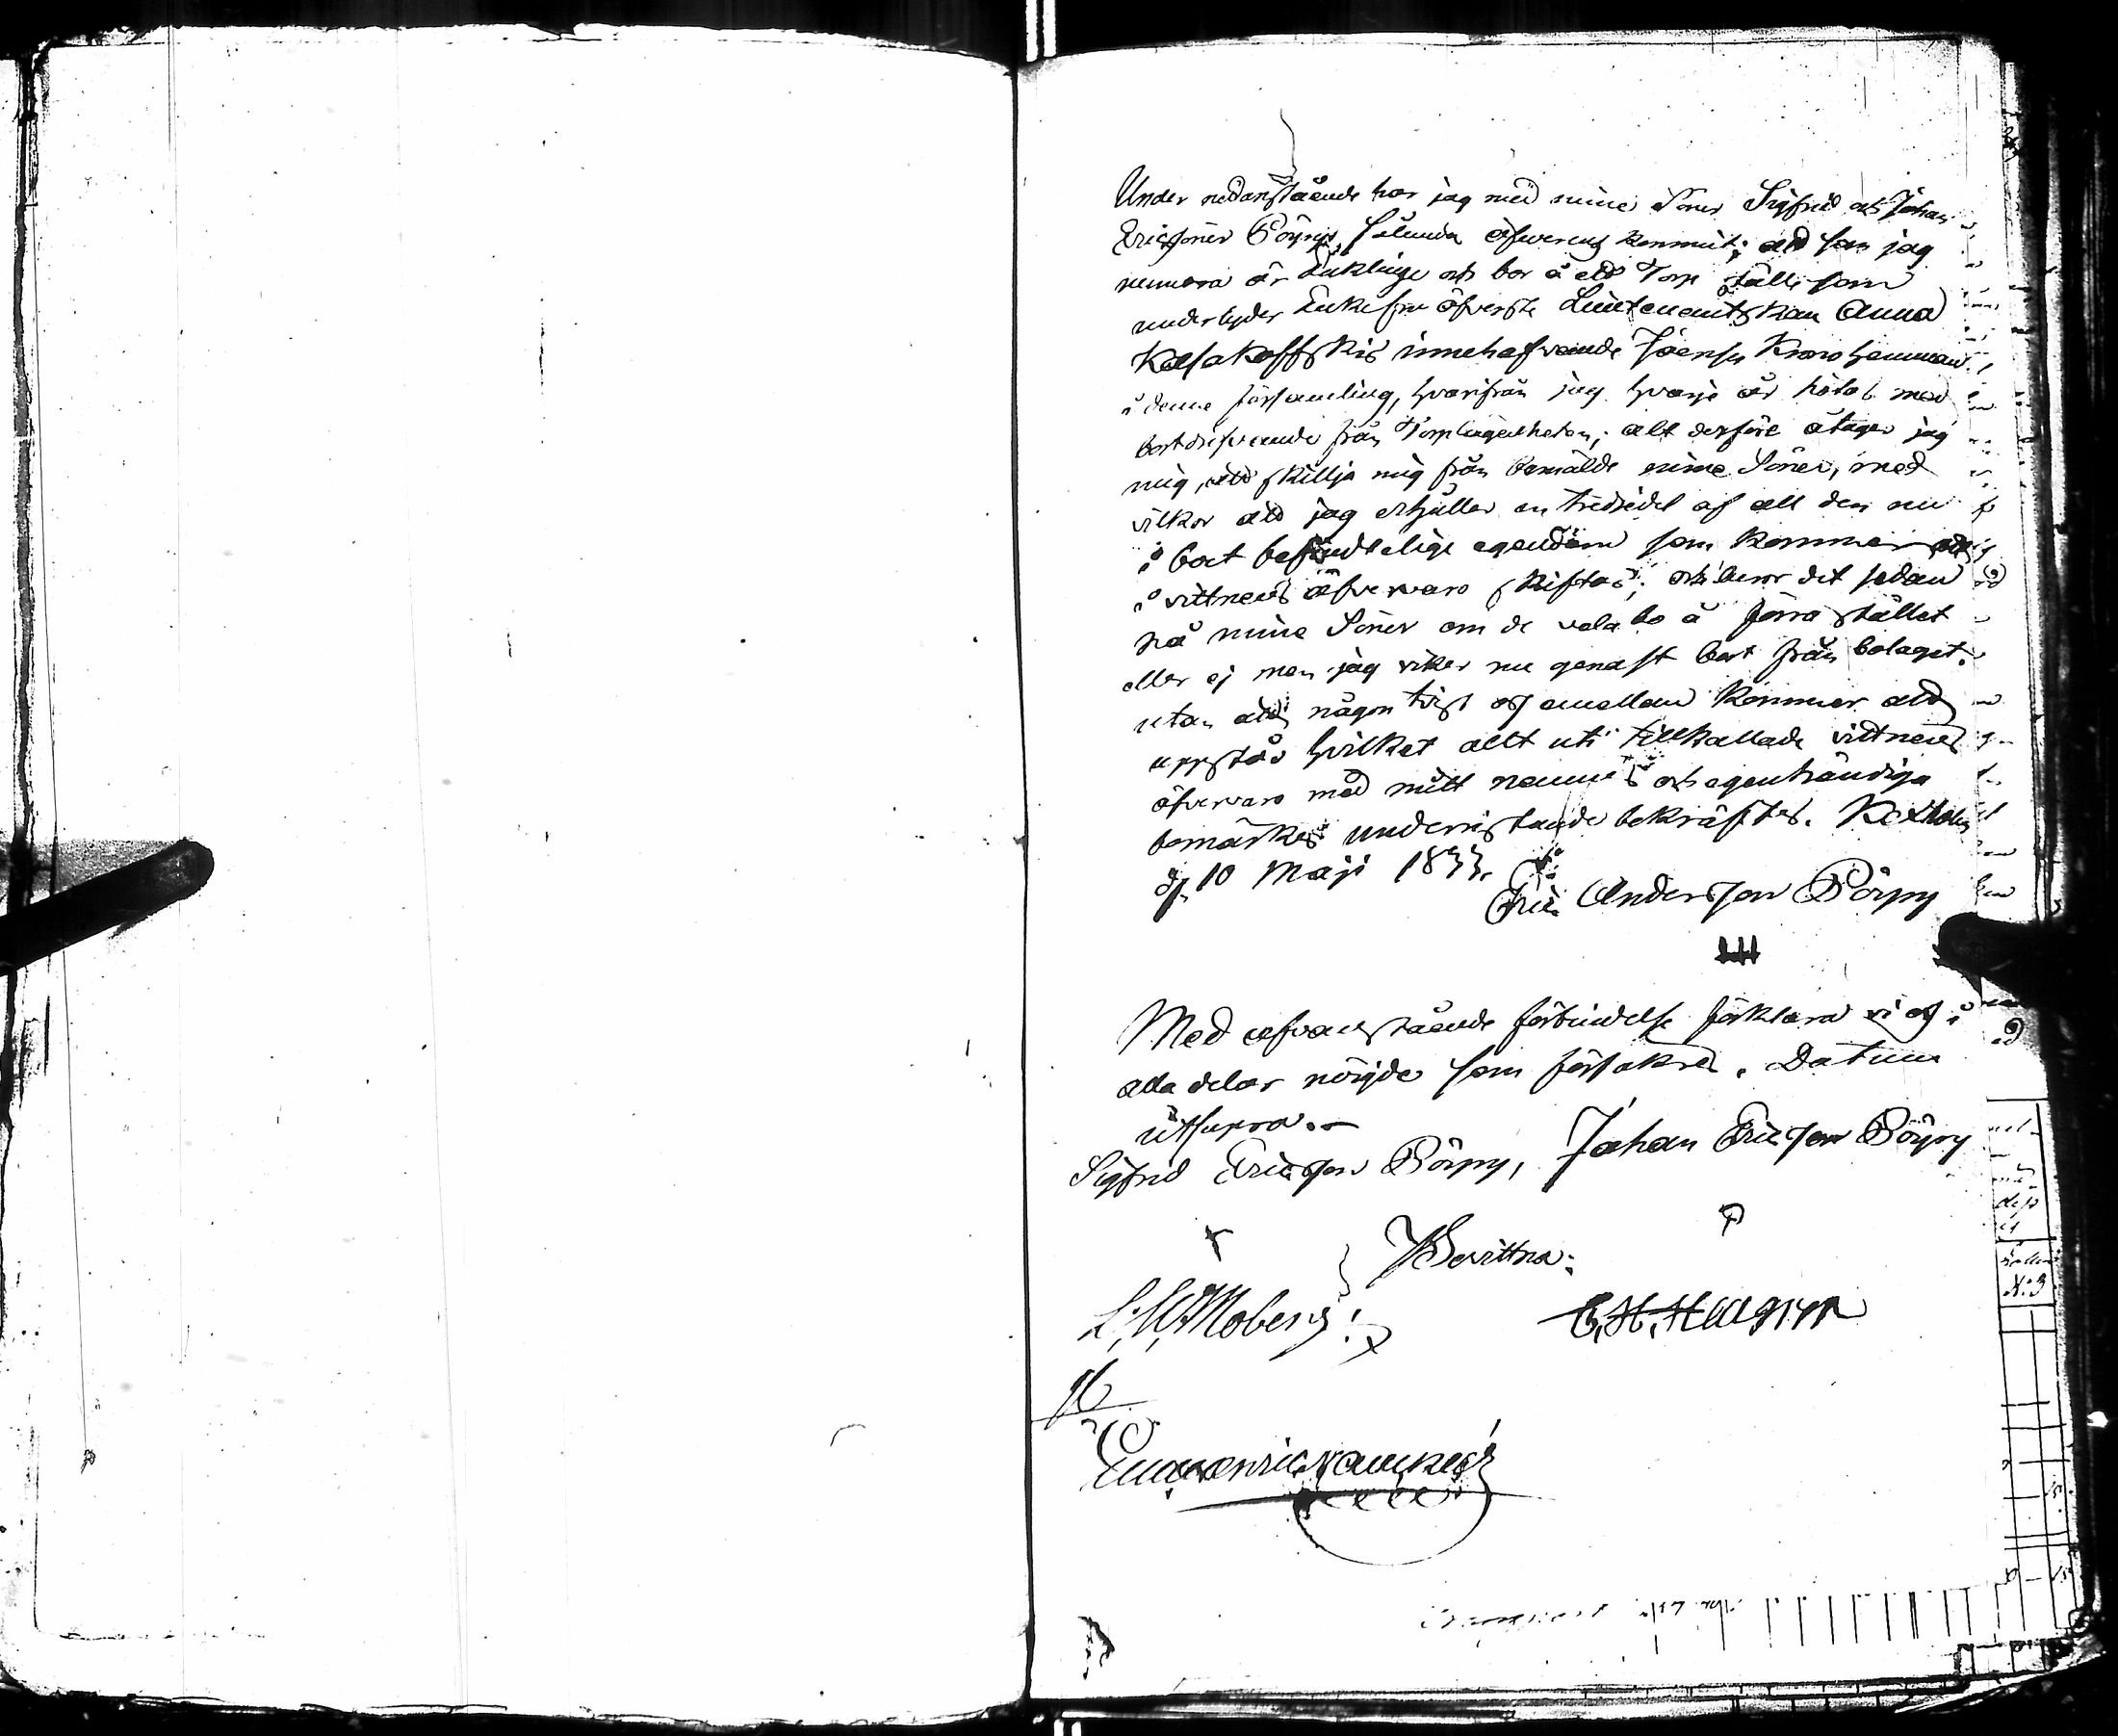 Under nedanstående har jag med mine Söner Sigfrid och Johan
Ericsöner Pöyry, sålunda öfverens kommit; att som jag
numera är Enkling och bor å ett Torp ställe som
underlyder Enkefru öfverste Lieutenantskan Anna
Kasakoffskis innehafvande Joensu Krono hemman
i denne församling, hvarifrån jag hvarje år hotas med
bortdrifvande från Torplägenheten; allt derföre åtager jag
mig, att skillja mig från bemälde mine Söner, med
vilkor att jag erhåller en tredjedel af all den nu
i boet befindtelige egendom som kommer att
i vittnens öfvervaro skiftas; och beror det sedan
på mine Söner om de vela bo å förra stället
eller ej men jag viker nu genast bort från bolaget.
utan att någon tvist oss emellan kommer att
uppstå hvilket allt uti tillkallade vittnens
öfvervaro med mitt namns och egenhändiga
bomärkes underristande bekräftes. Kexholm
d. 10 Maji 1833.
Eric Andersson Pöyry
Med ofvanstående förbindelse förklara vi oss i
alla delar nöijde som försäkras. Datum
utsupra.
Sigfrid Ericsson Pöyry, Johan Ericsson Pöyry
Bevittna:
L. W. Moberg